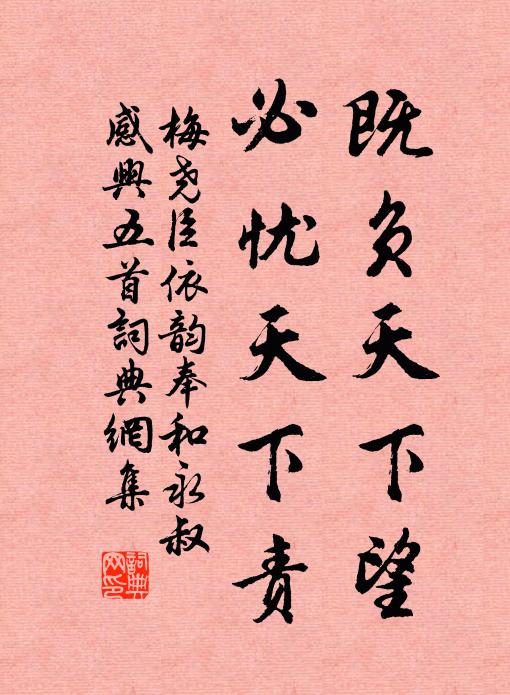 既负天下望
必忧天下责
梅尧臣依韵奉和永叔
感興五首詞典網集
詞典网印